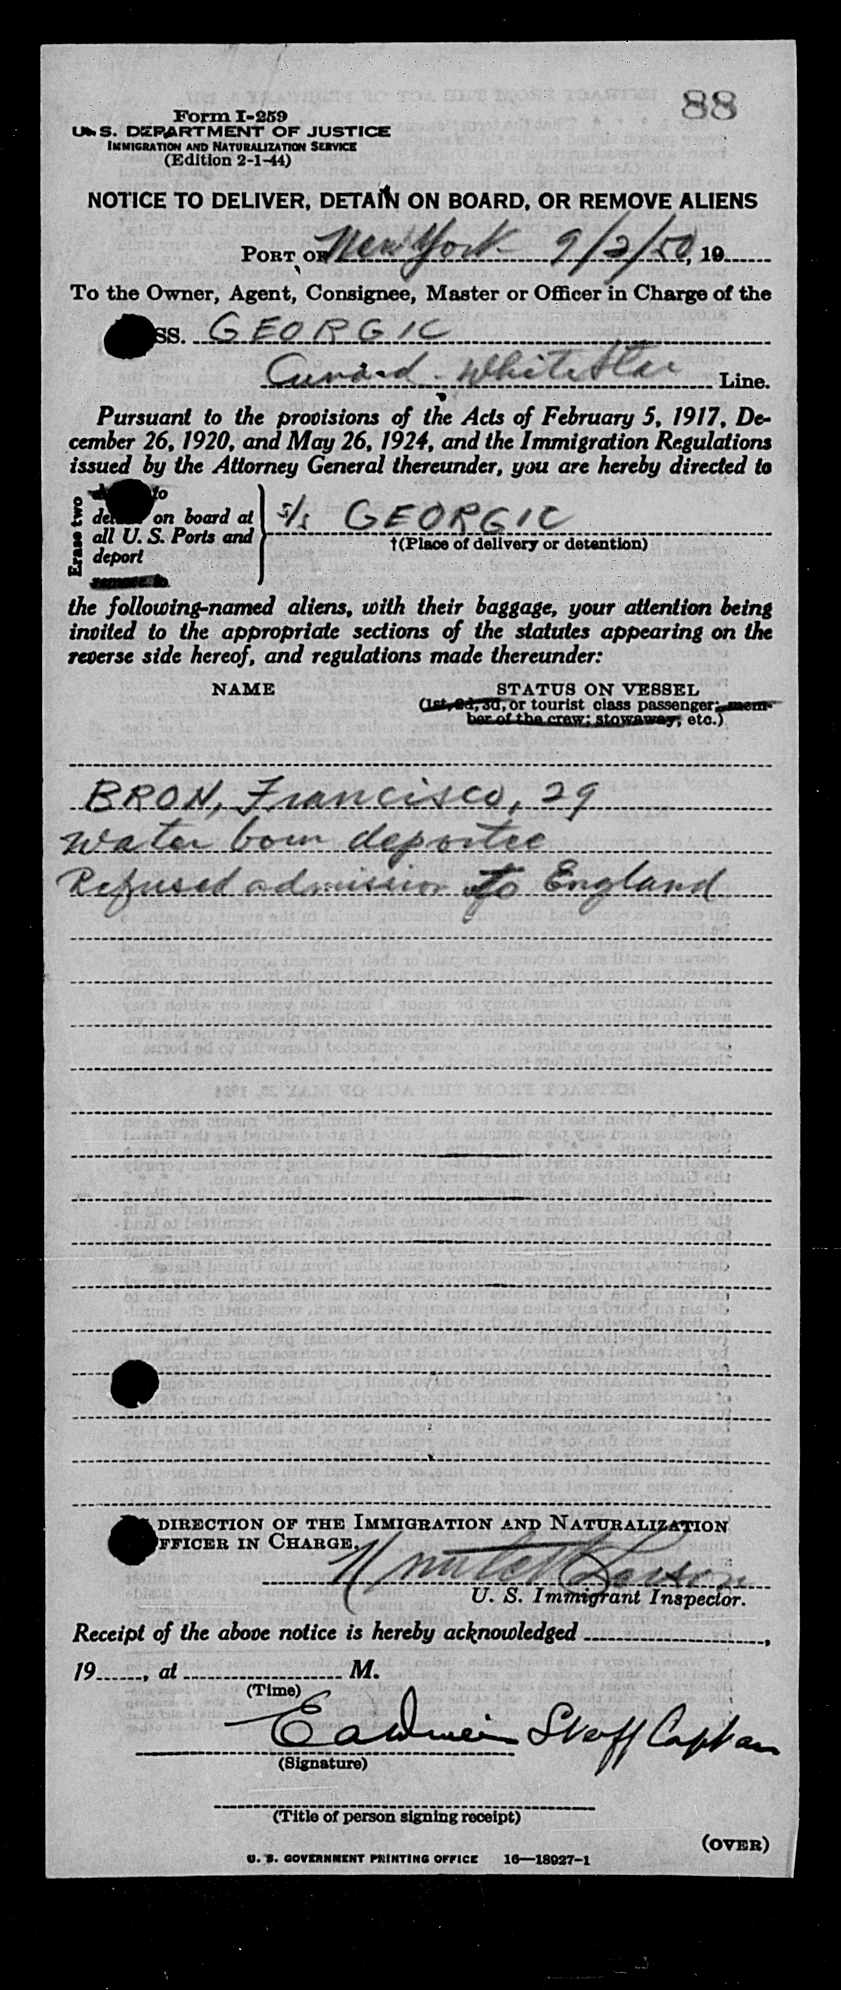 88
Form I-259
U. S. DEPARTMENT OF JUSTICE
IMMIGRATION AND NATURALIZATION SERVICE
(Edition 2-1-44)
NOTICE TO DELIVER, DETAIN ON BOARD, OR REMOVE ALIENS
PORT OF New York 9/2/50, 19
To the Owner, Agent, Consignee, Master or Officer in Charge of the
SS. GEORGIC
Cunard - White Star Line.
Pursuant to the provisions of the Acts of February 5, 1917, De-
cember 26, 1920, and May 26, 1924, and the Immigration Regulations
issued by the Attorney General thereunder, you are hereby directed to
Erase two
to
on board at
all U. S. Ports and
deport
remove to
s/s GEORGIC
†(Place of delivery or detention)
the following-named aliens, with their baggage, your attention being
invited to the appropriate sections of the statutes appearing on the
reverse side hereof, and regulations made thereunder:
NAME STATUS ON VESSEL
(1st, 2d, 3d, or tourist class passenger; mem-
ber of the crew; stowaway; etc.)
BRON, Francisco, 29
Water born deportee
Refused admission to England
DIRECTION OF THE IMMIGRATION AND NATURALIZATION
OFFICER IN CHARGE,
Larson
U. S. Immigrant Inspector.
Receipt of the above notice is hereby acknowledged ,
19 , at M.
(Time)
Staff Captain
(Signature)
(Title of person signing receipt)
(OVER)
U. S. GOVERNMENT PRINTING OFFICE 16—18927-1